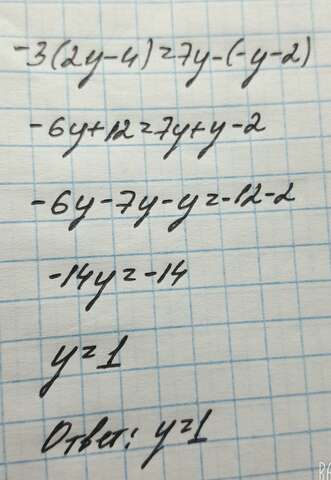 -3(2y-4)=7y-(-y-2)
-6y+12=7y+y-2
-6y-7y-y=-12-2
-14y=-14
y=1
Ответ: y=1